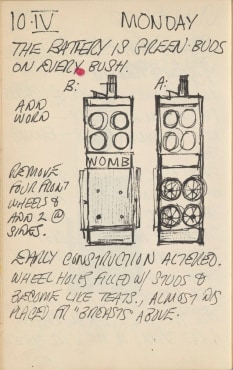 10·IV MONDAY
THE BATTERY IS GREEN·BUDS
ON EVERY BUSH.
B: A:
ADD
WORD
WOMB
REMOVE
FOUR FRONT
WHEELS &
ADD 2 @
SIDES.
EARLY CONSTRUCTION ALTERED.
WHEEL HOLES FILLED W/ STUDS &
BECOME LIKE TEATS., ALMOST
PLACED "BREASTS ABOVE.